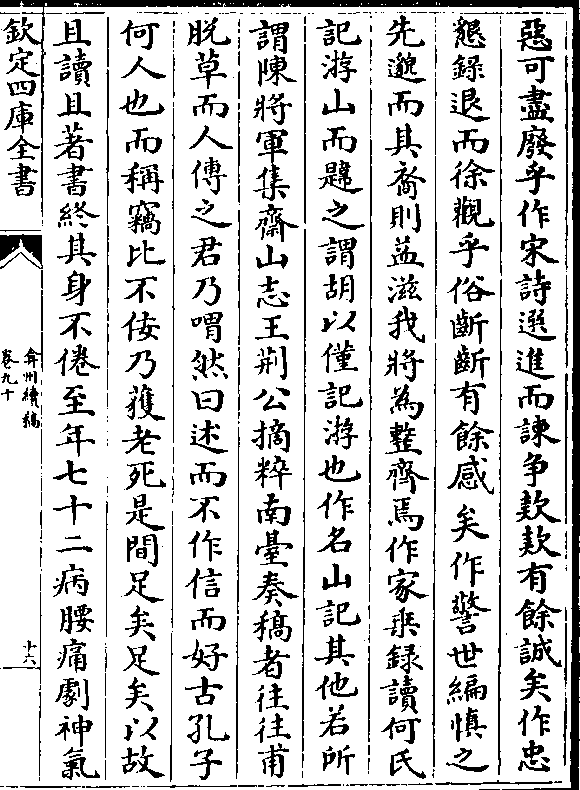 惡可盡廢乎作宋詩選進而諫争欵欵有餘誠矣作忠
懇錄退而徐觀乎俗斷斷有餘感矣作警世編愼之
先邈而其裔則益滋我將為整齊焉作家乗録讀何氏
記游山而韙之謂胡以僅記游也作名山記其他若所
謂陳將軍集齋山志王荆公摘粹南臺奏稿者往往甫
脱草而人傳之君乃喟然曰述而不作信而好古孔子
何人也而稱竊比不佞乃獲老死是間足矣足矣以故
且讀且著書終其身不倦至年七十二病腰痛劇神氣
欽定四庫全書
弇州續稿
卷九十
十六